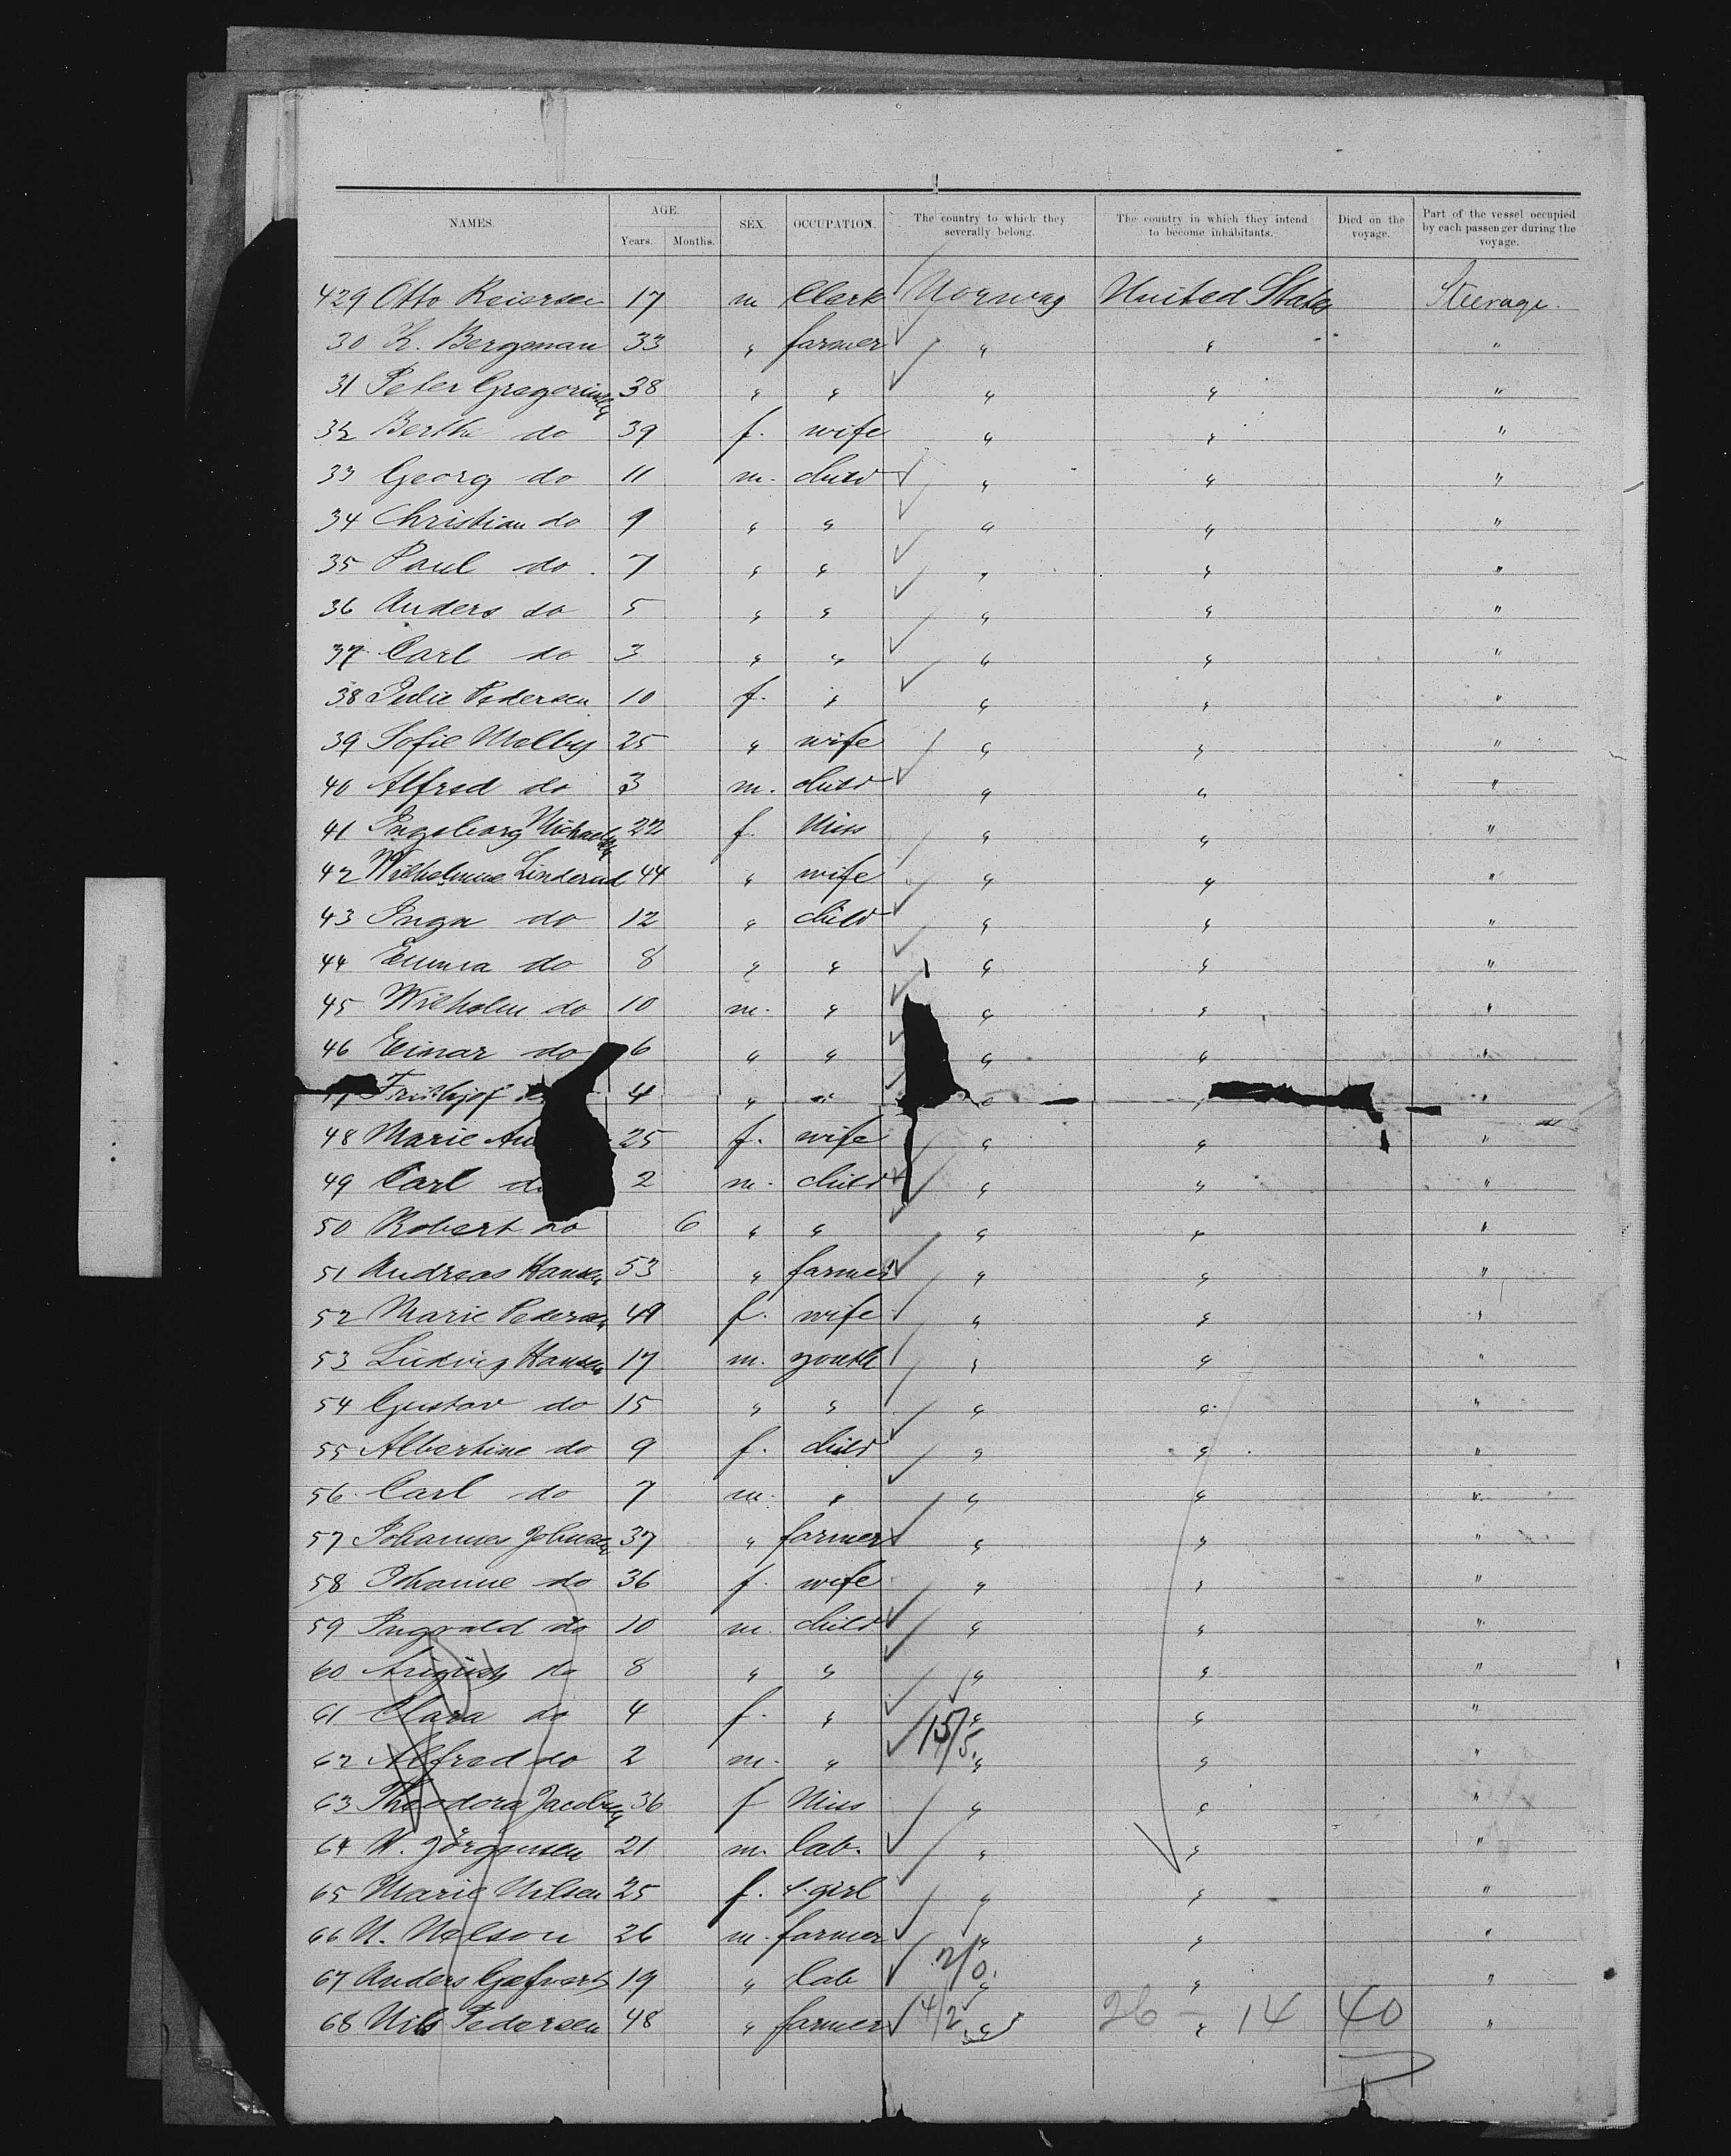 NAMES. AGE. Years. Months. SEX. OCCUPATION. The country to which they severally belong. The country in which they intend to become inhabitants. Died on the voyage. Part of the vessel occupied by each passenger during the voyage.
429 Otto Reiersen 17 m Clerk Norway United States Steerage.
30 K. Bergman 33 " farmer " " "
31 Peter Gregoriussen 38 " " " " "
32 Bertha do 39 f. wife " " "
33 Georg do 11 m. child " " "
34 Christian do 9 " " " " "
35 Paul do. 7 " " " " "
36 Anders do 5 " " " " "
37 Carl do 3 " " " " "
38 Julie Pedersen 10 f. " " " "
39 Sofie Melby 25 " wife " " "
40 Alfred do 3 m. child " " "
41 Ingeborg Michaelsen 22 f. Miss " " "
42 Wilhelmine Linderud 44 " wife " " "
43 Inga do 12 " child " " "
44 Emma do 8 " " " " "
45 Wilhelm do 10 m. " " " "
46 Einar do 6 " " " " "
Frithjof 4 " " " " "
48 Marie 25 f. wife " " "
49 Carl 2 m. child " " "
50 Robert do 6 " " " " "
51 Andreas Hansen 53 " farmer " " "
52 Marie Pedersen 49 f. wife " " "
53 Ludvig Hansen 17 m. youth " " "
54 Gustav do 15 " " " " "
55 Albertine do 9 f. child " " "
56. Carl do 7 m. " " " "
57 Johannes Johnsen 37 " farmer " " "
58 Johanne do 36 f. wife " " "
59 Ingvald do 10 m. child " " "
60 August do 8 " " " " "
61 Clara do 4 f. " " " "
62 Alfred do 2 m. " 15/5. " " "
63 Theodora Jacobsen 36 f Miss " " "
64 N. Jörgensen 21 m. lab. " " "
65 Marie Nilsen 25 f. s. girl " " "
66 N. Nelson 26 m. farmer " " "
67 Anders 19 " lab 2/0. " " "
68 Nils Pedersen 48 " farmer 4/2 " 26 - 14 40 " "